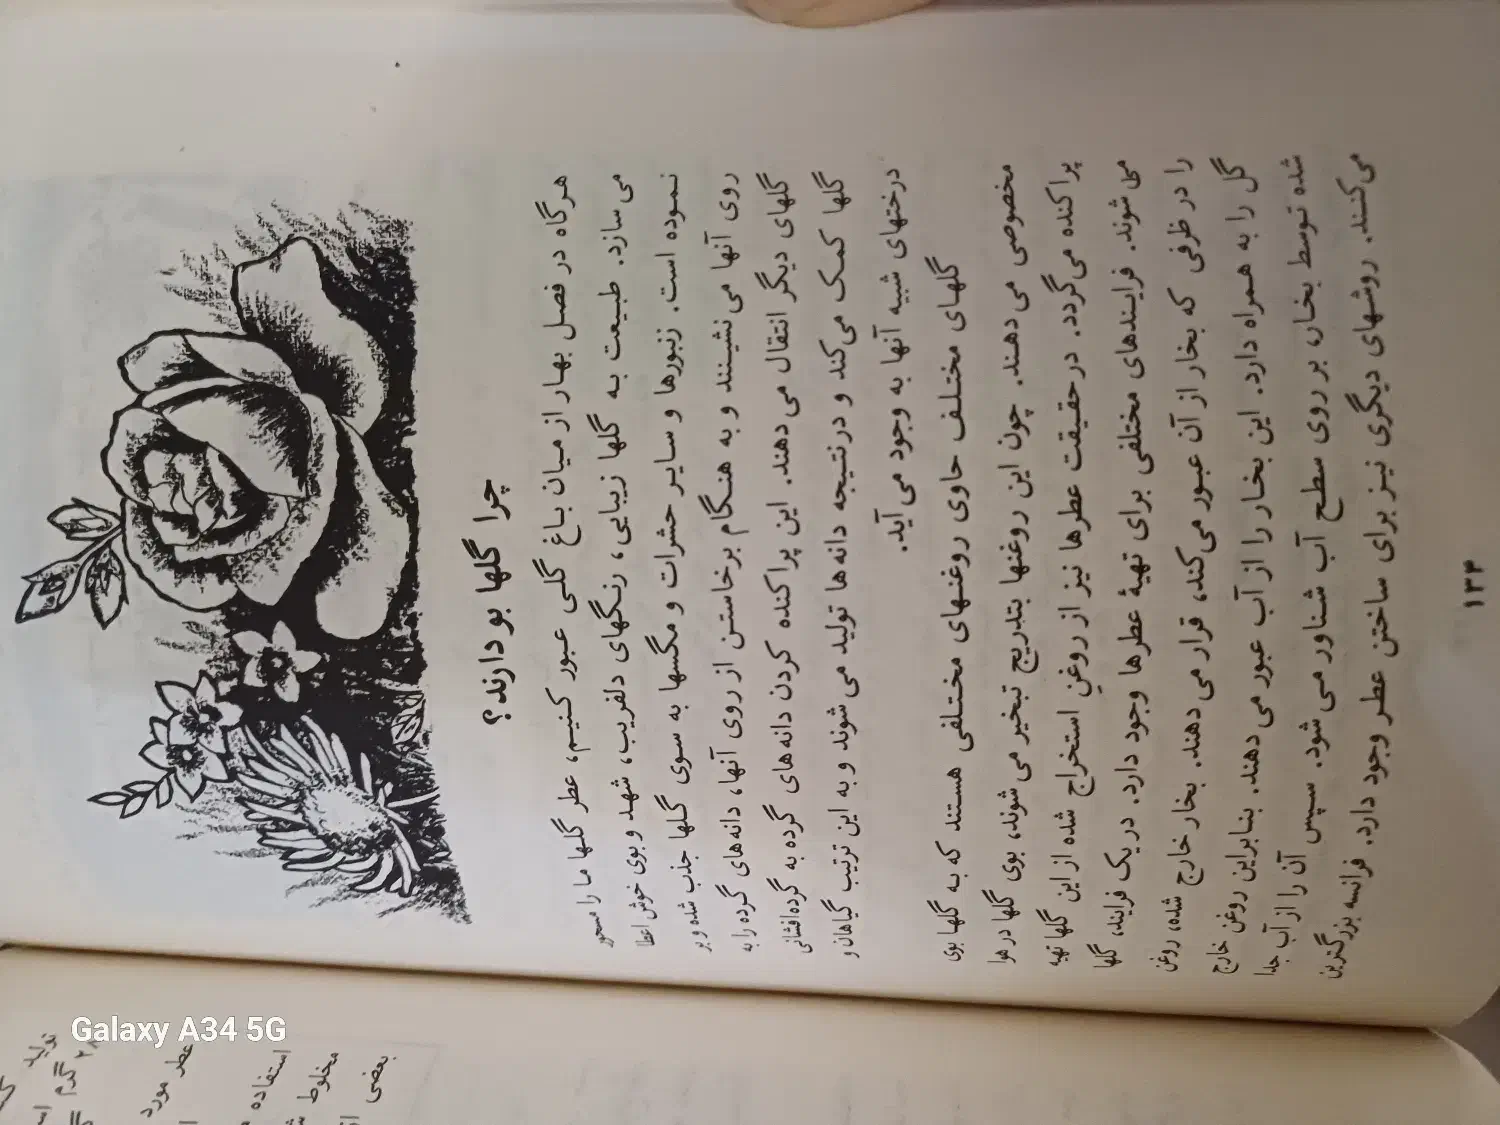 چرا گلها بو دارند؟
هرگاه در فصل بهار از میان باغ گلی عبور کنیم، عطر گلها ما را مسحور
می سازد. طبیعت به گلها زیبایی، رنگهای دلفریب، شهد و بوی خوش اعطا
نموده است. زنبورها و سایر حشرات و مگسها به سوی گلها جذب شده و بر
روی آنها می نشینند و به هنگام برخاستن از روی آنها، دانه های گرده را به
گلهای دیگر انتقال می دهند. این پراکنده کردن دانه های گرده به گرده افشانی
گلها کمک می کند و درنتیجه دانه ها تولید می شوند و به این ترتیب گیاهان و
درختهای شبیه آنها به وجود می آید.
گلهای مختلف حاوی روغنهای مختلفی هستند که به گلها بوی
مخصوصی می دهند. چون این روغنها بتدریج تبخیر می شوند، بوی گلها در هوا
پراکنده می گردد. درحقیقت عطرها نیز از روغنِ استخراج شده از این گلها تهیه
می شوند. فرایندهای مختلفی برای تهیهٔ عطرها وجود دارد. در یک فرایند، گلها
را در ظرفی که بخار از آن عبور می کند، قرار می دهند. بخار خارج شده، روغن
گل را به همراه دارد. این بخار را از آب عبور می دهند. بنابراین روغن خارج
شده توسط بخار، بر روی سطح آب شناور می شود. سپس آن را از آب جدا
می کنند. روشهای دیگری نیز برای ساختن عطر وجود دارد. فرانسه بزرگترین
۱۳۳
تولید
۲۸ گرم
عطر مورد
استفاده
مخلوط
بعضی
Galaxy A34 5G